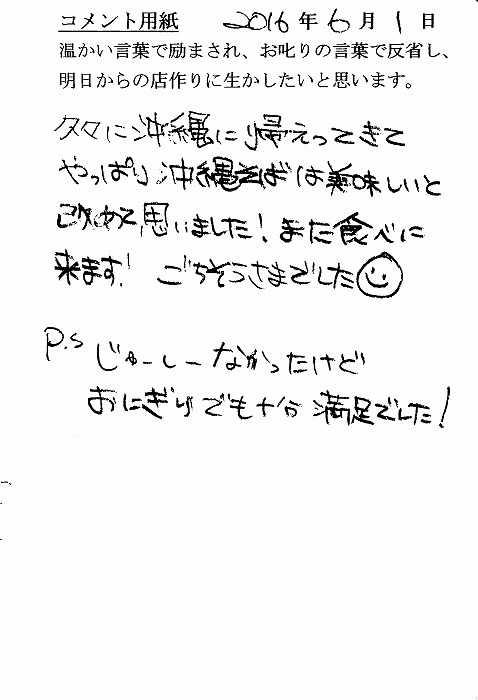 コメント用紙 2016年6月1日
温かい言葉で励まされ、お叱りの言葉で反省し、
明日からの店作りに生かしたいと思います。
久々に沖縄に帰えってきて
やっぱり沖縄そばは美味しいと
改めて思いました！また食べに
来ます！ ごちそうさまでした
P.S じゅーしーなかったけど
おにぎりでも十分満足でした！